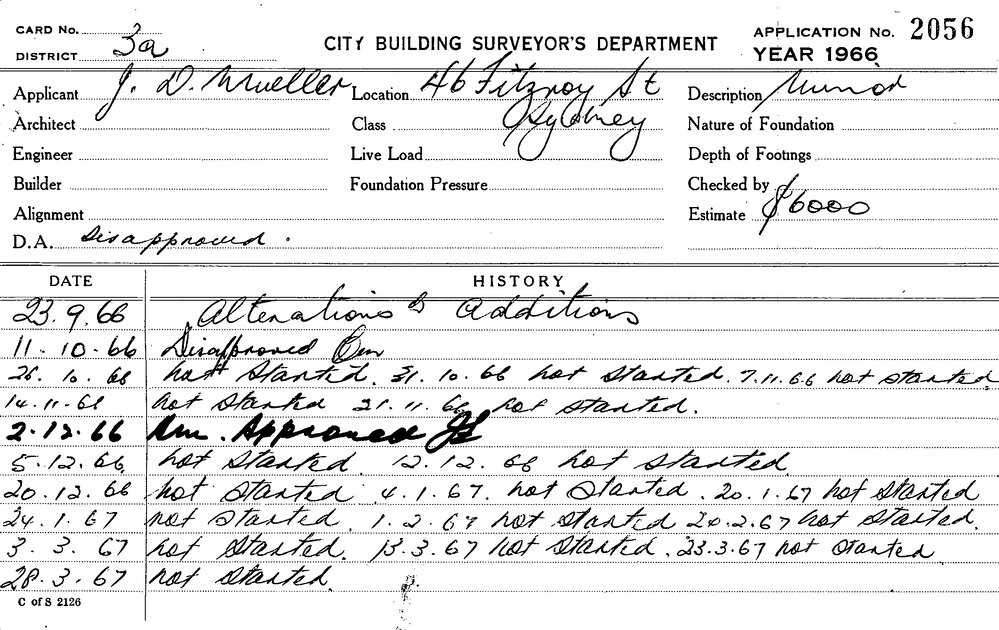 CARD No.
DISTRICT 3a
CITY BUILDING SURVEYOR'S DEPARTMENT
APPLICATION No. 2056
YEAR 1966
Applicant J. D. Mueller Location 46 Fitzroy St Description Minor
Architect Class Sydney Nature of Foundation
Engineer Live Load Depth of Footings
Builder Foundation Pressure Checked by
Alignment Estimate $6000
D.A. Disapproved.
DATE HISTORY
23.9.66 Alterations & Additions
11.10.66 Disapproved
26.10.66 not started. 31.10.66 not started. 7.11.66 not started
14.11.66 not started 21.11.66 not started.
2.12.66 Am. Approved
5.12.66 not started. 12.12.66 not started
20.12.66 not started 4.1.67. not started. 20.1.67 not started
24.1.67 not started. 1.2.67 not started 20.2.67 not started.
3.3.67 not started. 13.3.67 not started. 23.3.67 not started
28.3.67 not started.
C of S 2126